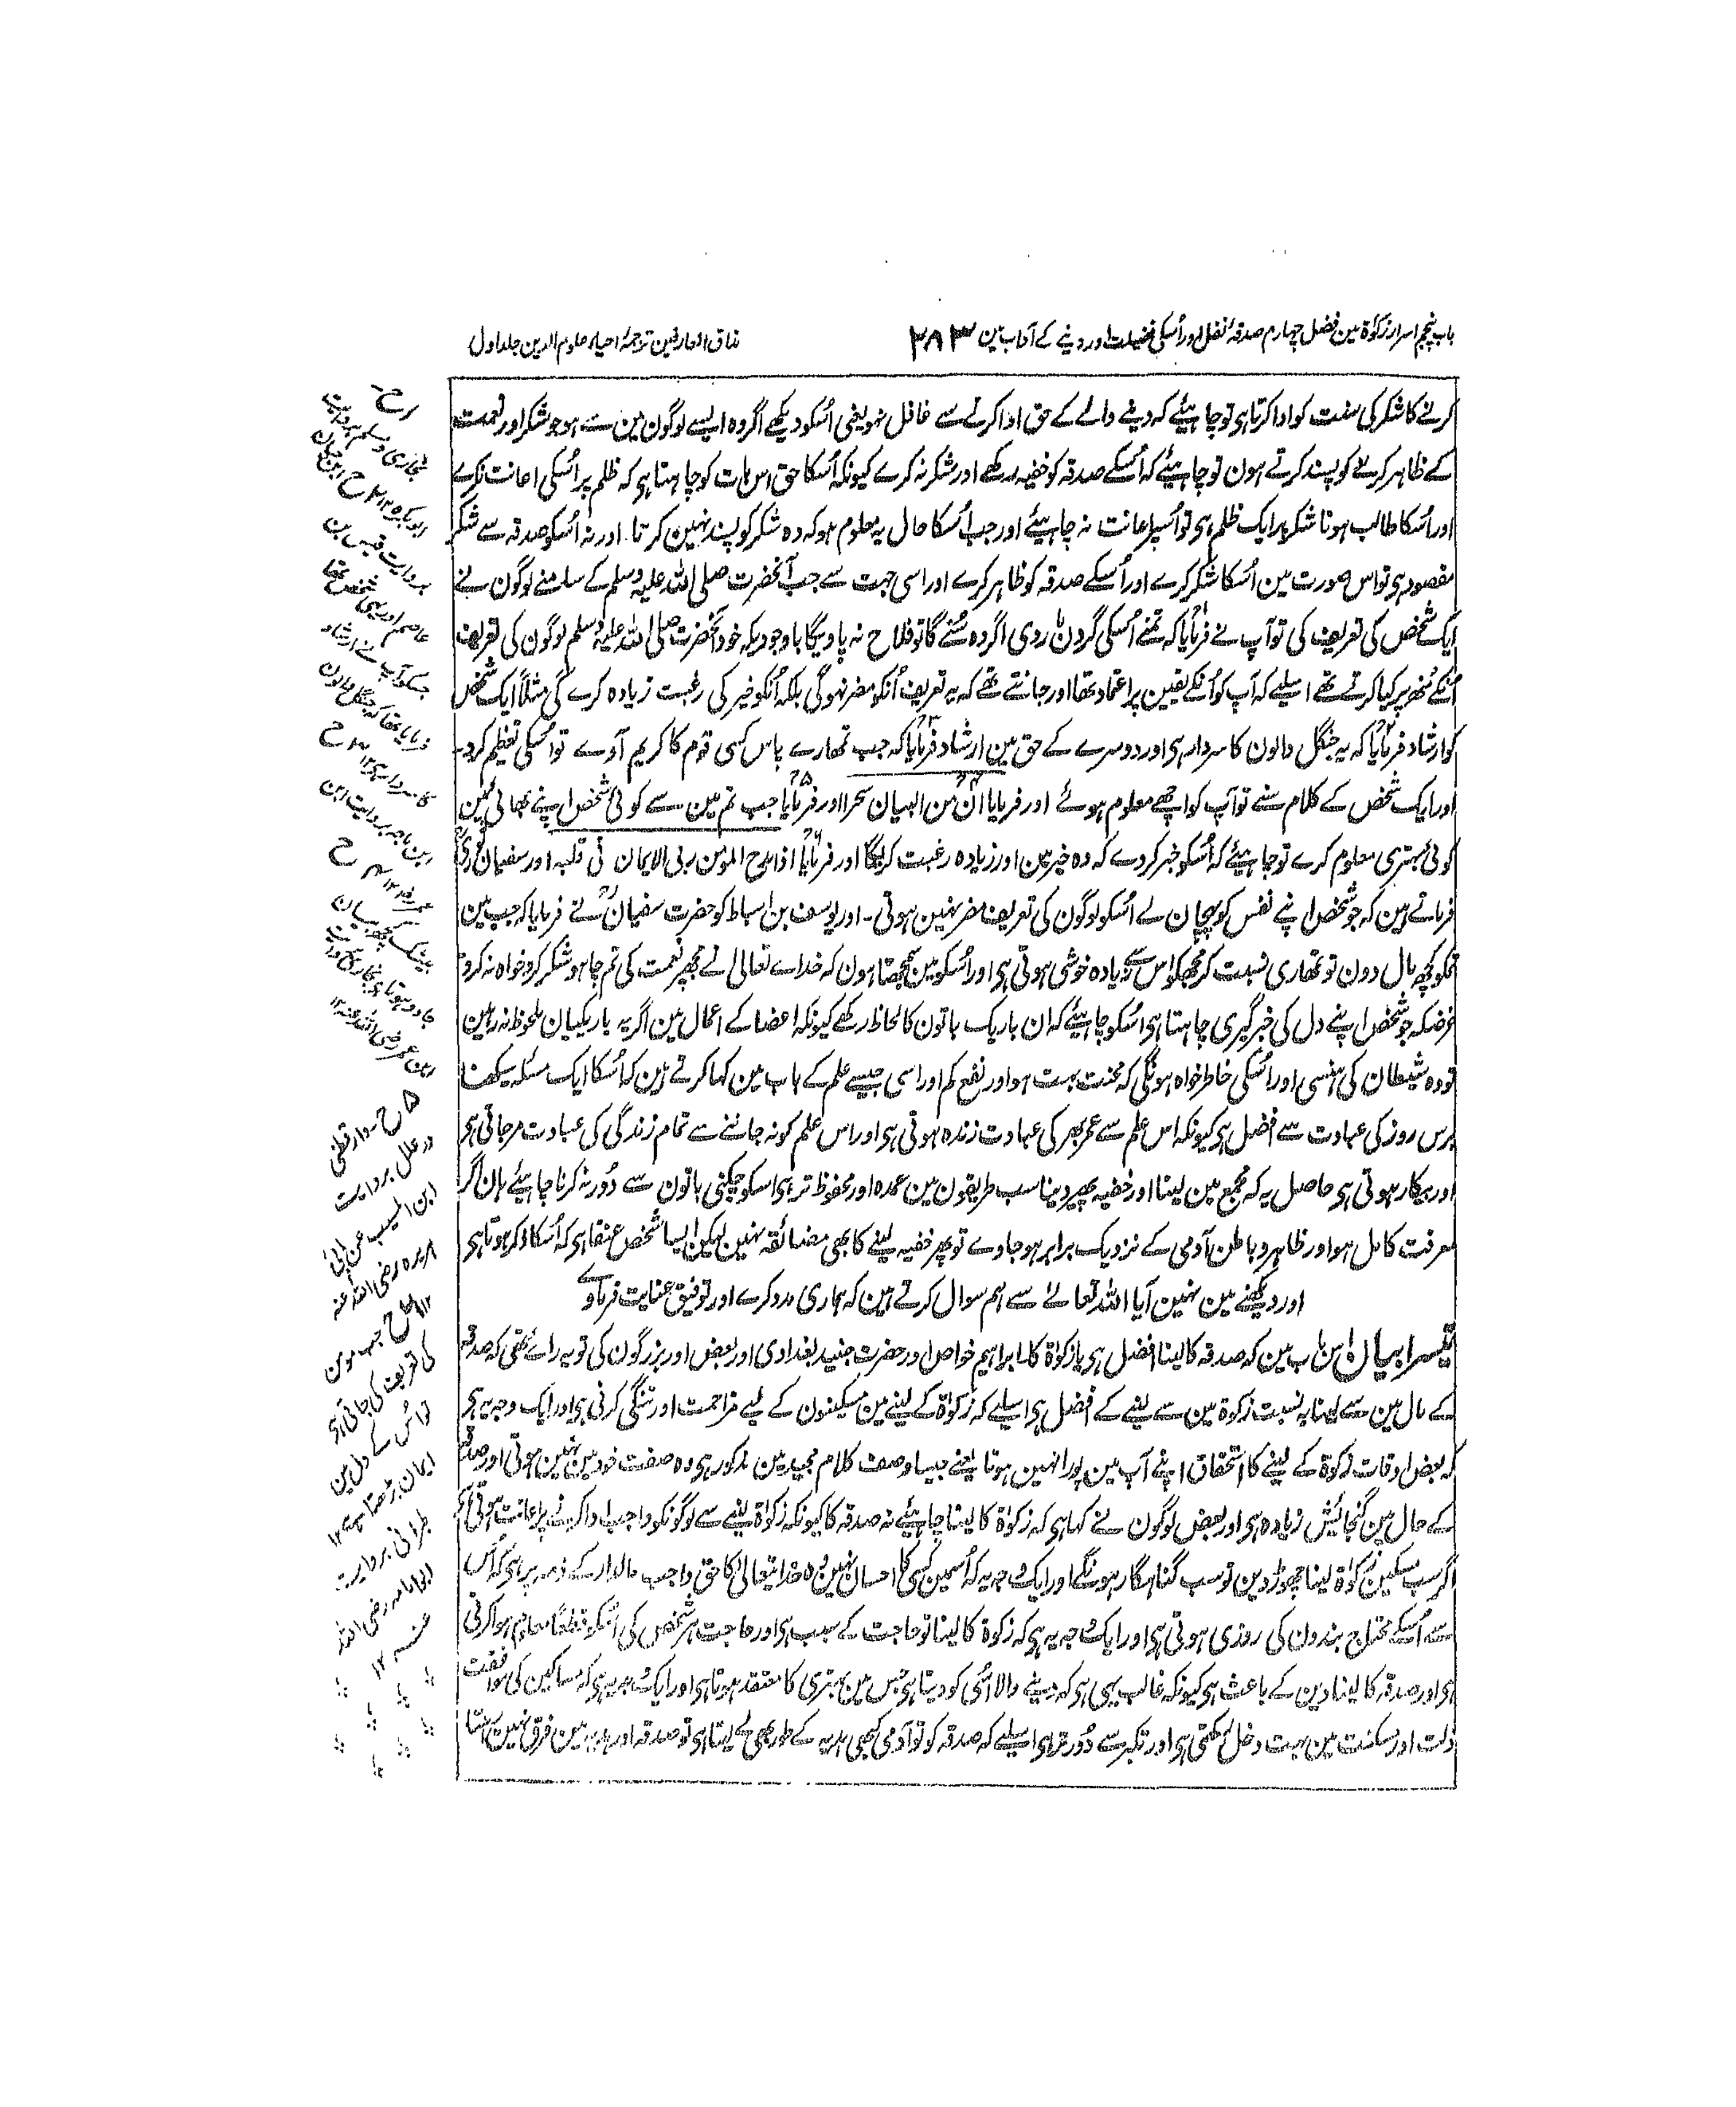 باب پنجم اسرار زکوٰۃ مین فصل چہارم صدقۂ نفل اور اُسکی فضیلت اور دینے کے آداب مین ۲۸۳ مذاق العارفین ترجمۂ احیاء علوم الدین جلد اول
کرنے کا شکر کی سنت کو ادا کرتا ہی تو چاہیئے کہ دینے والے کے حق ادا کرنے سے غافل نہو یعنی اُسکو دیکھے اگر وہ ایسے لوگون مین سے ہو جو شکر اور نعمت
کے ظاہر کرنے کو پسند کرتے ہون تو چاہیئے کہ اُسکے صدقہ کو خفیہ رکھے اور شکر نہ کرے کیونکہ اُسکا حق اس بات کو چاہتا ہی کہ ظلم پر اُسکی اعانت نکرے
اور اُسکا طالب ہونا شکر پر ایک ظلم ہی تو اُسپر اعانت نہ چاہیئے اور جب اُسکا حال یہ معلوم ہو کہ وہ شکر کو پسند نہین کرتا اور نہ اُسکو صدقہ سے شکر
مقصود ہی تو اس صورت مین اُسکا شکر کرے اور اُسکے صدقہ کو ظاہر کرے اور اسی جہت سے جب آنحضرت صلی اللہ علیہ وسلم کے سامنے لوگون نے
ایک شخص کی تعریف کی تو آپ نے فرمایا کہ تمنے اُسکی گردن مار دی اگر وہ سُنے گا تو فلاح نہ پاویگا باوجودیکہ خود آنحضرت صلی اللہ علیہ وسلم لوگون کی تعریف
اُنکے مُنھ پر کیا کرتے تھے اسلیے کہ آپ کو اُنکے یقین پر اعتماد تھا اور جانتے تھے کہ یہ تعریف اُنکو مضر نہوگی بلکہ اُنکو خیر کی رغبت زیادہ کرے گی مثلاً ایک شخص
کو ارشاد فرمایا کہ یہ جنگل والون کا سردار ہی اور دوسرے کے حق مین ارشاد فرمایا کہ جب تمھارے پاس کسی قوم کا کریم آوے تو اُسکی تعظیم کرو۔
اور ایک شخص کے کلام سنے تو آپ کو اچھے معلوم ہوئے اور فرمایا ان من البیان سحرا اور فرمایا جب تم مین سے کوئی شخص اپنے بھائی مین
کوئی بہتری معلوم کرے تو چاہیئے کہ اُسکو خبر کردے کہ وہ خیر مین اور زیادہ رغبت کریگا اور فرمایا اذا مدح المؤمن ربی الایمان فی قلبہ اور سفیان ثوری
فرماتے ہین کہ جو شخص اپنے نفس کو پہچان لے اُسکو لوگون کی تعریف مضر نہین ہوتی۔ اور یوسف بن اسباط کو حضرت سفیان نے فرمایا کہ جب مین
تمکو کچھ مال دون تو تمھاری نسبت کر مجھکو اس سے زیادہ خوشی ہوتی ہی اور اُسکو مین سمجھتا ہون کہ خداے تعالی نے مجھپر نعمت کی تم چاہو شکر کرو خواہ نہ کرو
غرضکہ جو شخص اپنے دل کی خبر گیری چاہتا ہی اُسکو چاہیئے کہ ان باریک باتون کا لحاظ رکھے کیونکہ اعضا کے اعمال مین اگر یہ باریکیان ملحوظ نہ رہین
تو وہ شیطان کی ہنسی اور اُسکی خاطر خواہ ہونگی کہ محنت بہت ہو اور نفع کم اور اسی جیسے علم کے باب مین کہا کرتے ہین کہ اُسکا ایک مسئلہ سیکھنا
برس روز کی عبادت سے افضل ہی کیونکہ اس علم سے عمر بھر کی عبادت زندہ ہوتی ہی اور اس علم کو نہ جاننے سے تمام زندگی کی عبادت مر جاتی ہی
اور بیکار ہوتی ہی حاصل یہ کہ مجمع مین لینا اور خفیہ پھیر دینا سب طریقون مین عمدہ اور محفوظ تر ہی اسکو چکنی باتون سے دُور نہ کرنا چاہیئے ہان اگر
معرفت کامل ہو اور ظاہر و باطن آدمی کے نزدیک برابر ہو جاوے تو پھر خفیہ لینے کا بھی مضائقہ نہین لیکن ایسا شخص عنقا ہی کہ اُسکا ذکر ہوتا ہی
اور دیکھنے مین نہین آیا اللہ تعالے سے ہم سوال کرتے ہین کہ ہماری مدد کرے اور توفیق عنایت فرماوے
تیسرا بیان اس باب مین کہ صدقہ کا لینا افضل ہی یا زکوٰۃ کا ابراہیم خواص اور حضرت جنید بغدادی اور بعض اور بزرگون کی تو یہ راے تھی کہ صدقہ
کے مال مین سے لینا بہ نسبت زکوٰۃ مین سے لینے کے افضل ہی اسلیے کہ زکوٰۃ کے لینے مین مسکینون کے لیے مزاحمت اور تنگی کرنی ہی اور ایک وجہ یہ ہی
کہ بعض اوقات زکوٰۃ کے لینے کا استحقاق اپنے آپ مین پورا نہین ہوتا یعنے جیسا وصف کلام مجید مین مذکور ہی وہ صفت خود مین نہین ہوتی اور صدقہ
کے حال مین گنجائش زیادہ ہی اور بعض لوگون نے کہا ہی کہ زکوٰۃ کا لینا چاہیئے نہ صدقہ کا کیونکہ زکوٰۃ لینے سے لوگونکو واجب ادا کرنے پر اعانت ہوتی ہی
اگر سب مسکین زکوٰۃ لینا چھوڑ دین تو سب گناہگار ہونگے اور ایک وجہ یہ کہ اُسمین کسی کا احسان نہین وہ خدا یتعالیٰ کا حق واجب مالدار کے ذمہ پر ہی کہ اُس
سے اُسکے محتاج بندون کی روزی ہوتی ہی اور ایک وجہ یہ ہی کہ زکوٰۃ کا لینا تو حاجت کے سبب ہی اور حاجت ہر شخص کی اُسکو قطعاً معلوم ہوا کرتی
ہی اور صدقہ کا لینا دین کے باعث ہی کیونکہ غالب یہی ہی کہ دینے والا اُسی کو دیتا ہی جس مین بہتری کا معتقد ہوتا ہی اور ایک وجہ یہ ہی کہ مساکین کی موافقت
ذلت اور مسکنت مین بہت دخل رکھتی ہی اور تکبر سے دُور تر ہی اسلیے کہ صدقہ کو تو آدمی کبھی ہدیہ کے طور بھی لے لیتا ہی تو صدقہ اور ہدیہ مین فرق نہین رہتا
بخاری و مسلم بروایت
ابوبکرہ ۱۲ ۲ ح
بروایت قیس بن
عاصم اور یہی شخص تھا
جسکو آپ نے ارشاد
فرمایا تھا کہ جنگل والون
کا سردار ہی ۱۲ ۳ ح
ابن ماجہ بروایت ابن
عمر ۱۲ ۴ ح
بیشک کچھ بیان
جادو ہوتا ہی بخاری بروایت
ابن عمر رضی اللہ عنہ ۱۲
۵ ح دارقطنی
در علل بروایت
ابن المسیب عن ابی
ہریرہ رضی اللہ عنہ
۱۲ ۶ ح جب مومن
کی تعریف کی جاتی ہی
تو اُس کے دل مین
ایمان بڑھتا ہی ۱۲
طبرانی بروایت
ابوامامہ رضی اللہ
عنہ ۱۲